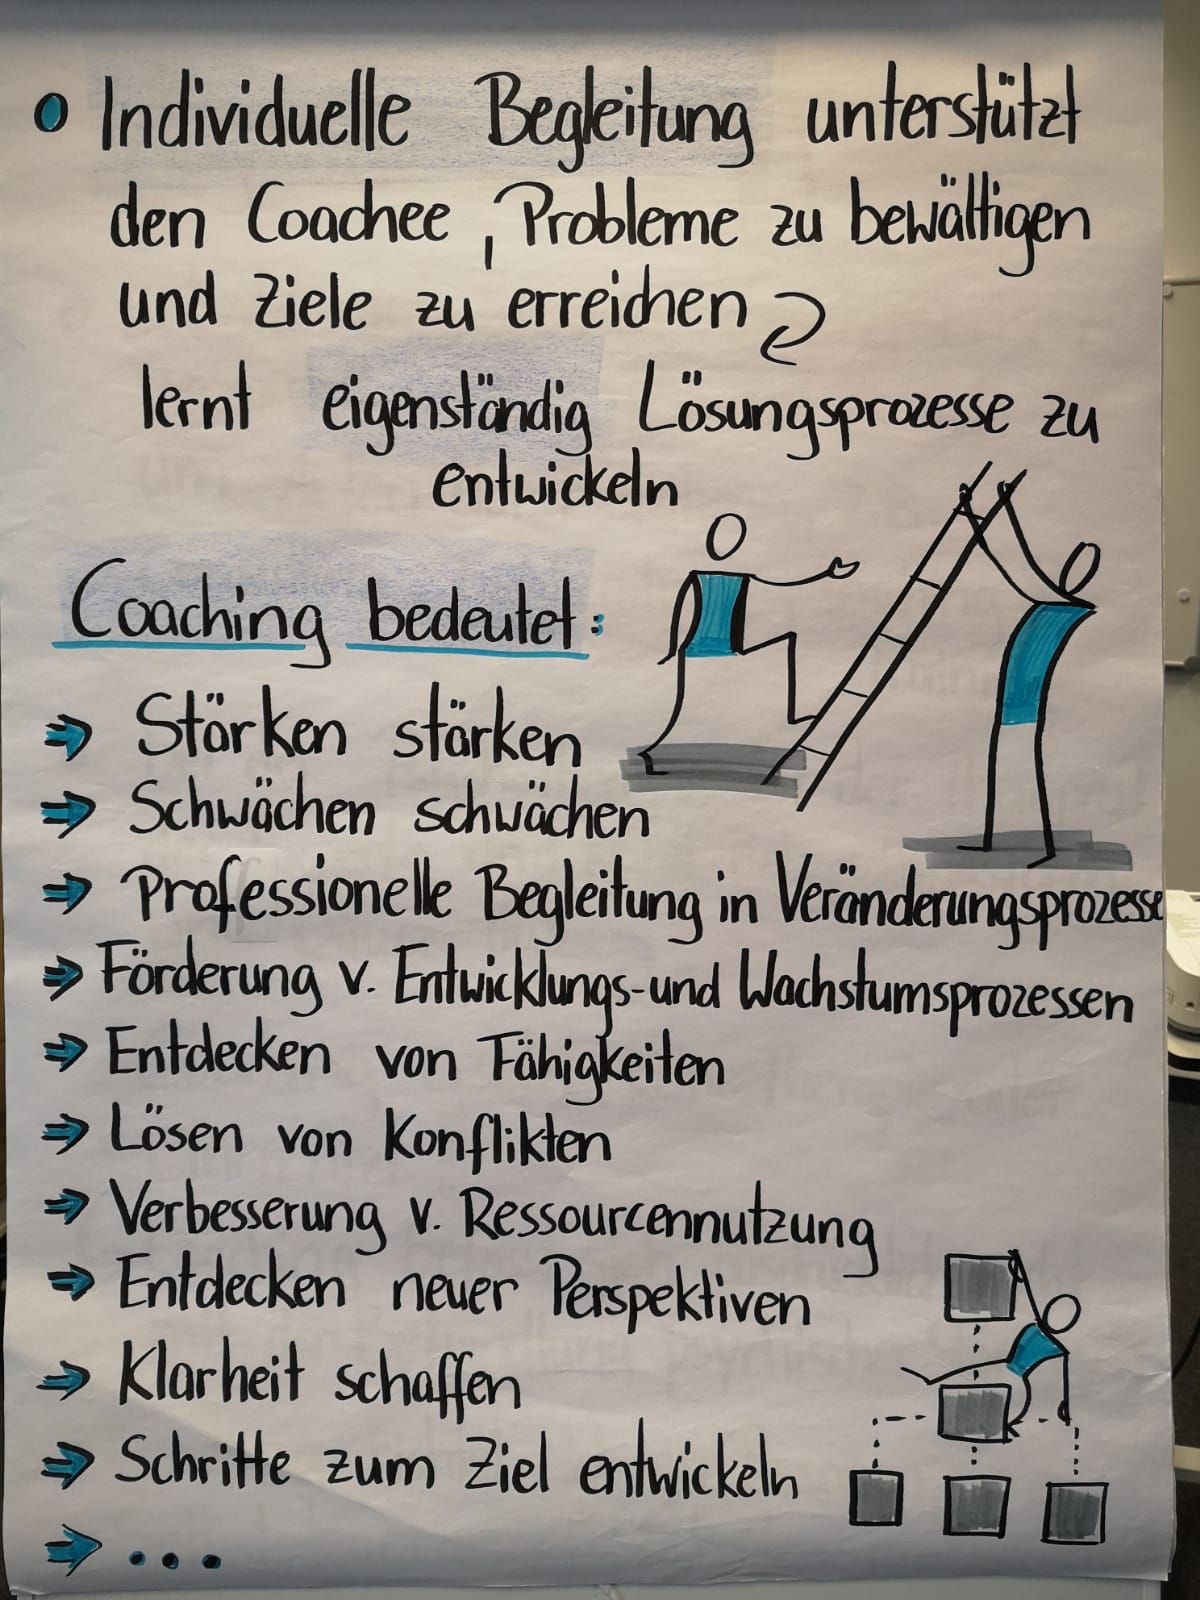 Individuelle Begleitung unterstützt
den Coachee, Probleme zu bewältigen
und Ziele zu erreichen
lernt eigenständig Lösungsprozesse zu
entwickeln
Coaching bedeutet:
Stärken stärken
Schwächen schwächen
Professionelle Begleitung in Veränderungsprozesse
Förderung v. Entwicklungs-und Wachstumsprozessen
Entdecken von Fähigkeiten
Lösen von Konflikten
Verbesserung v. Ressourcennutzung
Entdecken neuer Perspektiven
Klarheit schaffen
Schritte zum Ziel entwickeln
...